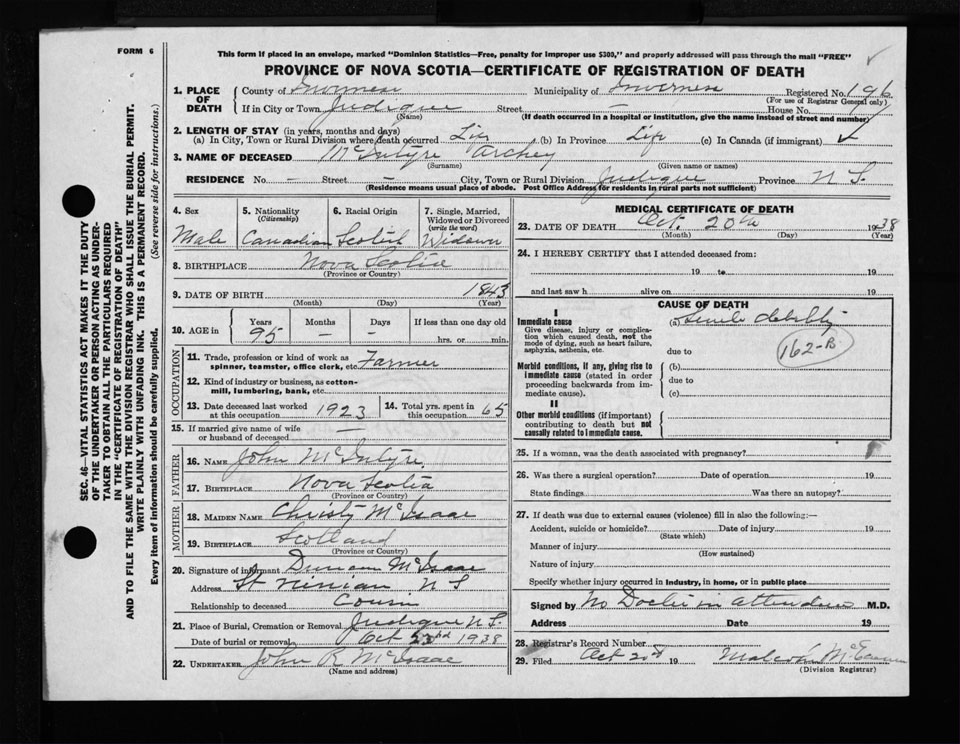 FORM 6
This form if placed in an envelope, marked "Dominion Statistics—Free, penalty for improper use $300," and properly addressed will pass through the mail "FREE"
PROVINCE OF NOVA SCOTIA—CERTIFICATE OF REGISTRATION OF DEATH
SEC. 46—VITAL STATISTICS ACT MAKES IT THE DUTY
OF THE UNDERTAKER OR PERSON ACTING AS UNDER-
TAKER TO OBTAIN ALL THE PARTICULARS REQUIRED
IN THE "CERTIFICATE OF REGISTRATION OF DEATH"
AND TO FILE THE SAME WITH THE DIVISION REGISTRAR WHO SHALL ISSUE THE BURIAL PERMIT.
WRITE PLAINLY WITH UNFADING INK. THIS IS A PERMANENT RECORD.
Every item of information should be carefully supplied. (See reverse side for instructions.)
1. PLACE OF DEATH
County of Inverness Municipality of Inverness Registered No. 196
(For use of Registrar General only)
If in City or Town Judique Street — House No.
(Name) (If death occurred in a hospital or institution, give the name instead of street and number)
2. LENGTH OF STAY (in years, months and days)
(a) In City, Town or Rural Division where death occurred Life (b) In Province Life (c) In Canada (if immigrant) ✓
3. NAME OF DECEASED McIntyre Archey
(Surname) (Given name or names)
RESIDENCE No. — Street — City, Town or Rural Division Judique Province N S.
(Residence means usual place of abode. Post Office Address for residents in rural parts not sufficient)
4. Sex Male
5. Nationality (Citizenship) Canadian
6. Racial Origin Scotish
7. Single, Married, Widowed or Divorced (write the word) Widower
8. BIRTHPLACE Nova Scotia
(Province or Country)
9. DATE OF BIRTH 1843
(Month) (Day) (Year)
10. AGE in Years 95 Months — Days — If less than one day old hrs. or min.
OCCUPATION
11. Trade, profession or kind of work as spinner, teamster, office clerk, etc. Farmer
12. Kind of industry or business, as cotton-mill, lumbering, bank, etc.
13. Date deceased last worked at this occupation 1923
14. Total yrs. spent in this occupation 65
15. If married give name of wife or husband of deceased —
FATHER
16. NAME John McIntyre.
17. BIRTHPLACE Nova Scotia
(Province or Country)
MOTHER
18. MAIDEN NAME Christy McIsaac
19. BIRTHPLACE Scotland
(Province or Country)
20. Signature of informant Duncan McIsaac
Address St Ninian N S
Relationship to deceased Cousin
21. Place of Burial, Cremation or Removal Judique N S.
Date of burial or removal Oct 23rd 1938
22. UNDERTAKER John R McIsaac
(Name and address)
MEDICAL CERTIFICATE OF DEATH
23. DATE OF DEATH Oct. 20th 1938
(Month) (Day) (Year)
24. I HEREBY CERTIFY that I attended deceased from:
19 to 19
and last saw h alive on 19
CAUSE OF DEATH
I
Immediate cause
Give disease, injury or complication which caused death, not the mode of dying, such as heart failure, asphyxia, asthenia, etc.
(a) Senile debility
162-B
due to
Morbid conditions, if any, giving rise to immediate cause (stated in order proceeding backwards from immediate cause).
(b)
due to
(c)
II
Other morbid conditions (if important) contributing to death but not causally related to immediate cause.
25. If a woman, was the death associated with pregnancy?
26. Was there a surgical operation? Date of operation 19
State findings Was there an autopsy?
27. If death was due to external causes (violence) fill in also the following:—
Accident, suicide or homicide? Date of injury 19
(State which)
Manner of injury
(How sustained)
Nature of injury
Specify whether injury occurred in Industry, in home, or in public place
Signed by No Doctor in attendance M.D.
Address Date 19
28. Registrar's Record Number
29. Filed Oct 20th 19 Malcolm
(Division Registrar)